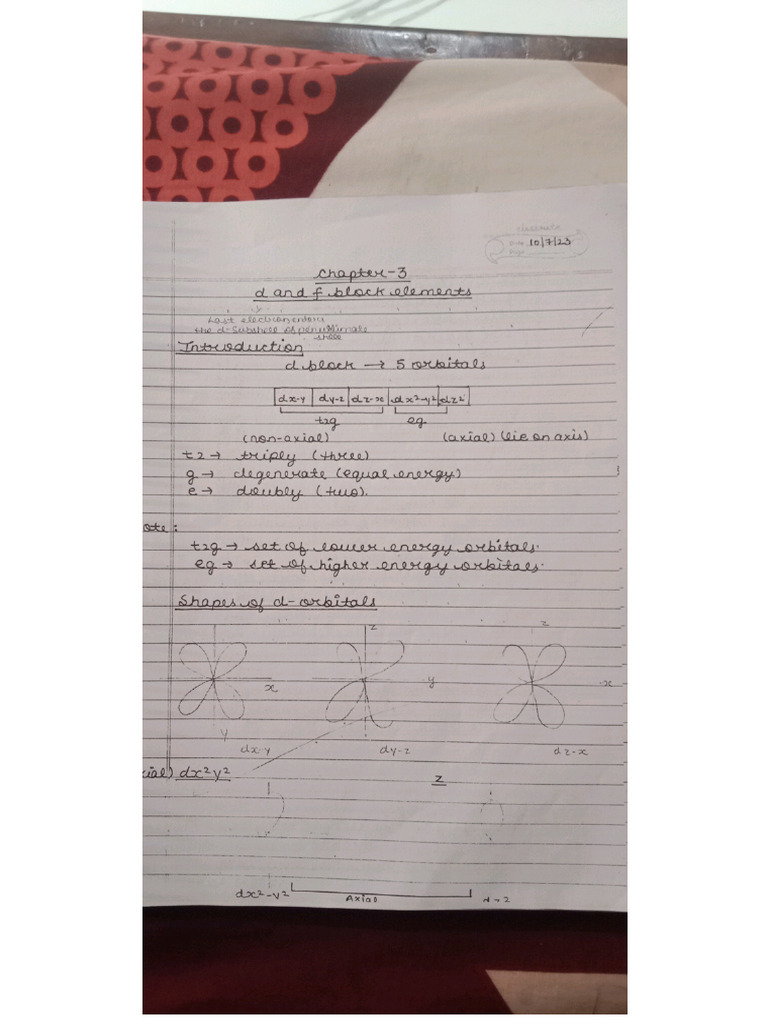 classmate
Date 10/7/23
Page
Chapter-3
d and f block elements
Last electron enters
the d-Subshell of penultimate
shell
Introduction
d block → 5 orbitals
dx-y dy-z dz-x dx²-y² dz²
t2g eg
(non-axial) (axial) (lie on axis)
t2 → triply (three)
g → degenerate (equal energy)
e → doubly (two).
ote:
t2g → set of lower energy orbitals.
eg → set of higher energy orbitals.
Shapes of d-orbitals
z z
x y x
y
dx-y dy-z dz-x
xial) dx²y² z
dx²-y² Axial